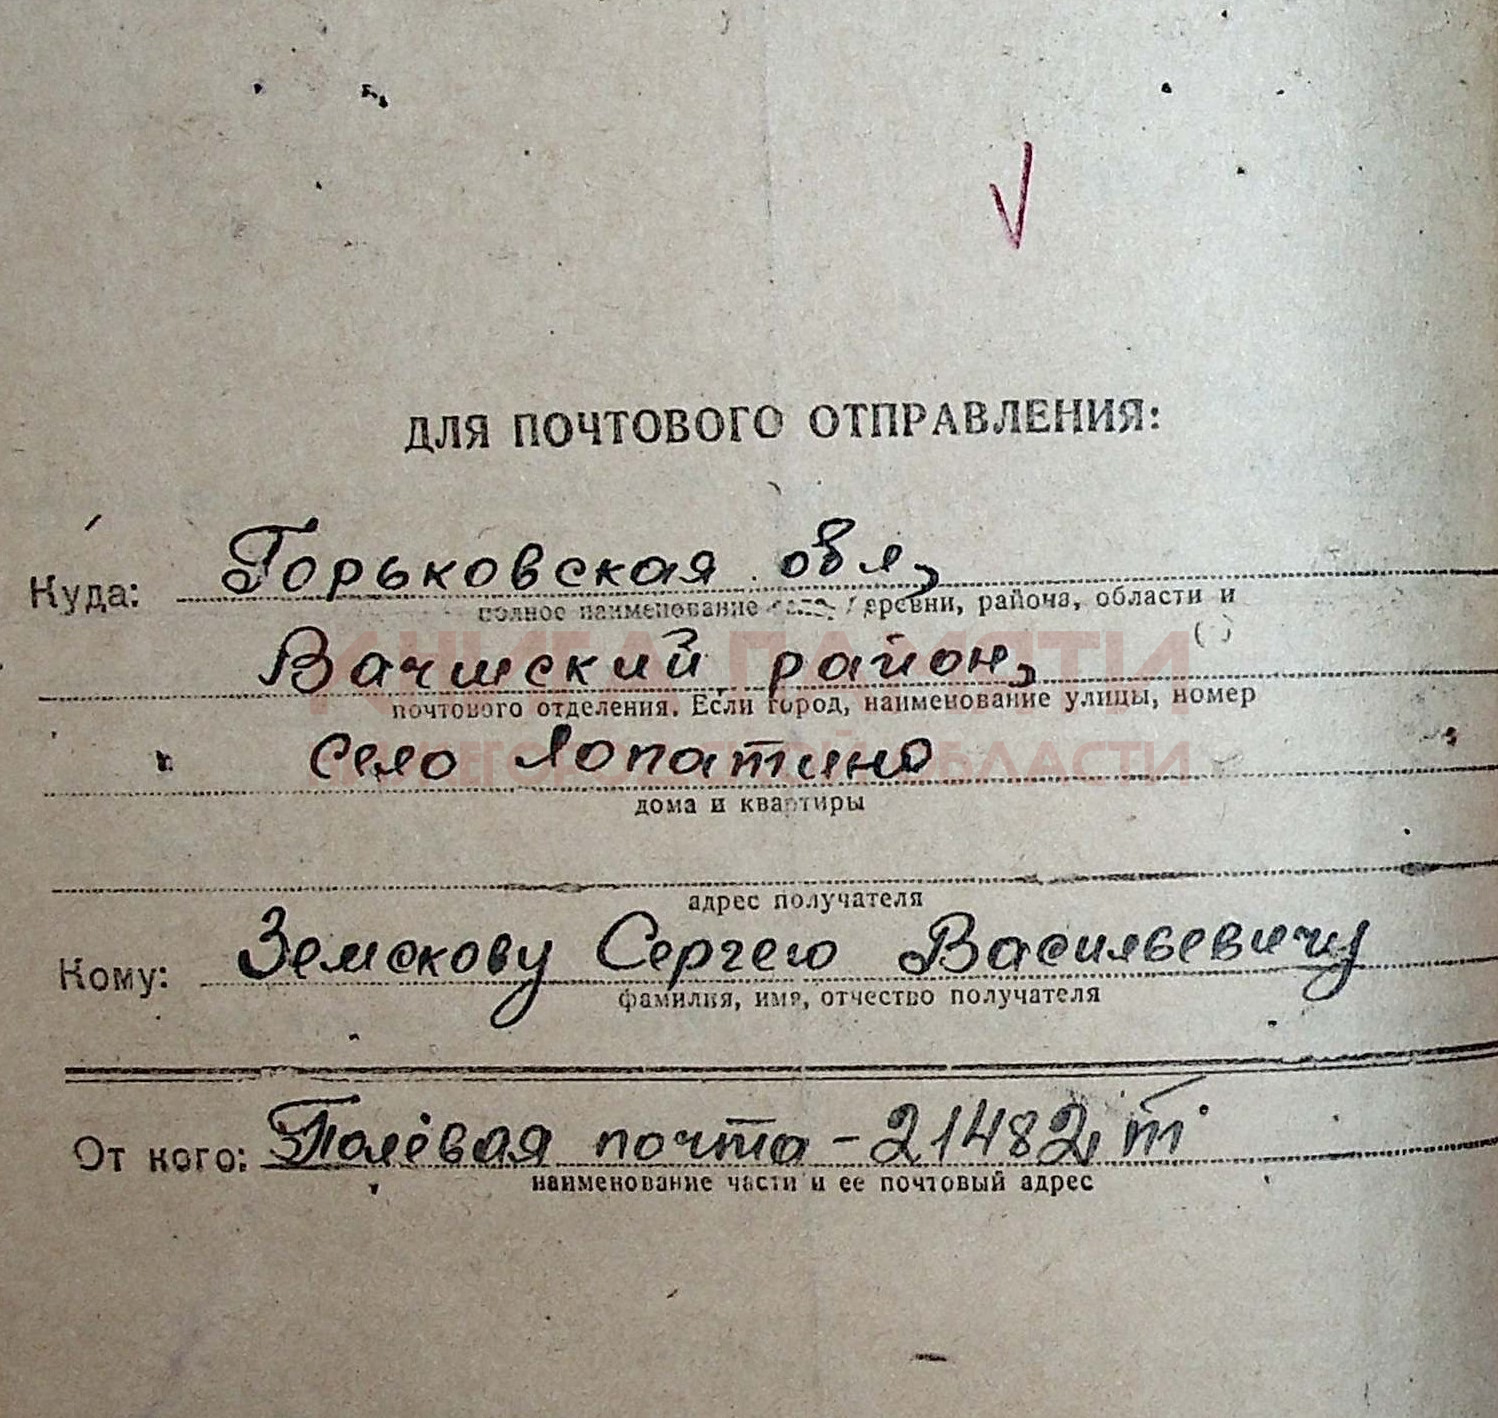 ДЛЯ ПОЧТОВОГО ОТПРАВЛЕНИЯ:
Куда: Горьковская обл,
полное наименование села, деревни, района, области и
Вачшский район,
почтового отделения. Если город, наименование улицы, номер
село Лопатино
дома и квартиры
адрес получателя
Кому: Земскову Сергею Васильевичу
фамилия, имя, отчество получателя
От кого: Полевая почта - 21482, т
наименование части и ее почтовый адрес
КНИГА ПАМЯТИ
НИЖЕГОРОДСКОЙ ОБЛАСТИ